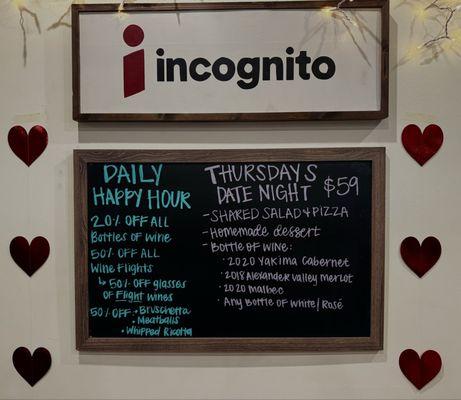 i incognito
DAILY
HAPPY HOUR
20% OFF ALL
Bottles of Wine
50% OFF ALL
Wine Flights
↳ 50% OFF glasses
of Flight wines
50% OFF: • Bruschetta
• Meatballs
• Whipped Ricotta
THURSDAYS
DATE NIGHT $59
- SHARED SALAD & PIZZA
- Homemade dessert
- Bottle of wine:
• 2020 Yakima Cabernet
• 2018 Alexander Valley Merlot
• 2020 malbec
• Any Bottle of White/Rosé